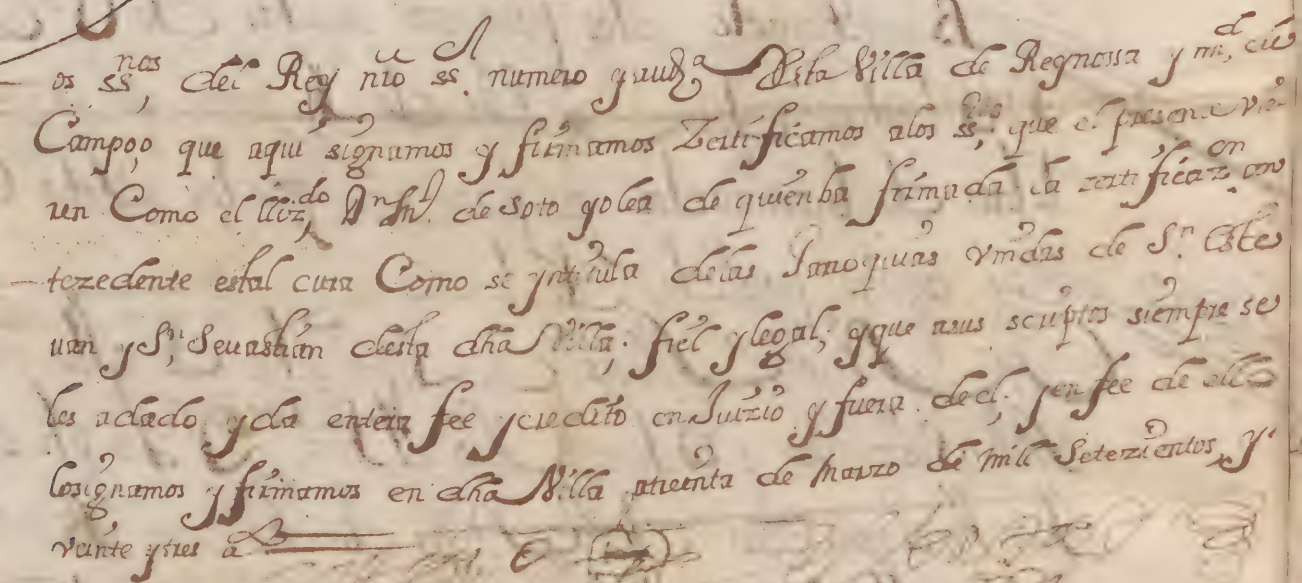 os ss.nos del Rey nro ss.r numero y aud.a Desta Villa de Reynossa y mr.d de
Campoo, que aqui signamos y firmamos Zertificamos a los ss.res que el presente vie
ren Como el lizdo, Dn Jn de Soto y olea de quien ba firmada la zertificazon an
tezedente es tal cura Como se yntitula de las Parroquias Vnidas de Sn Este
van y Sn Sevastian desta dha Villa, fiel y legal, y que a sus scriptos siempre se
les a dado y da entera fee y credito en Juizio y fuera de el, y en fee de ello
lo signamos y firmamos en dha Villa a treinta de Marzo de mill Setezientos, y
veinte y tres a